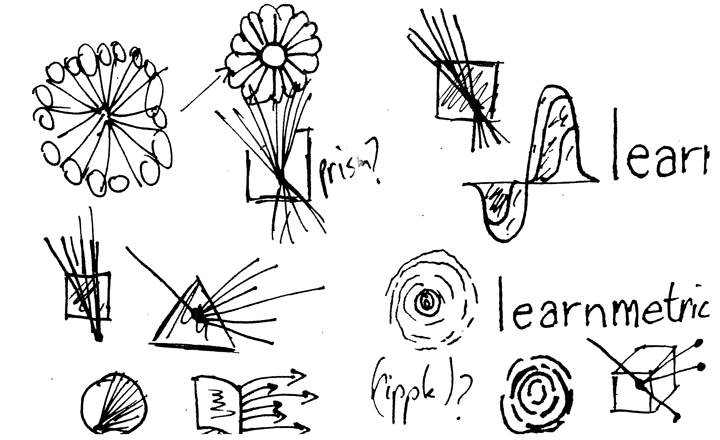 prism?
lear
learnmetric
(ripple)?